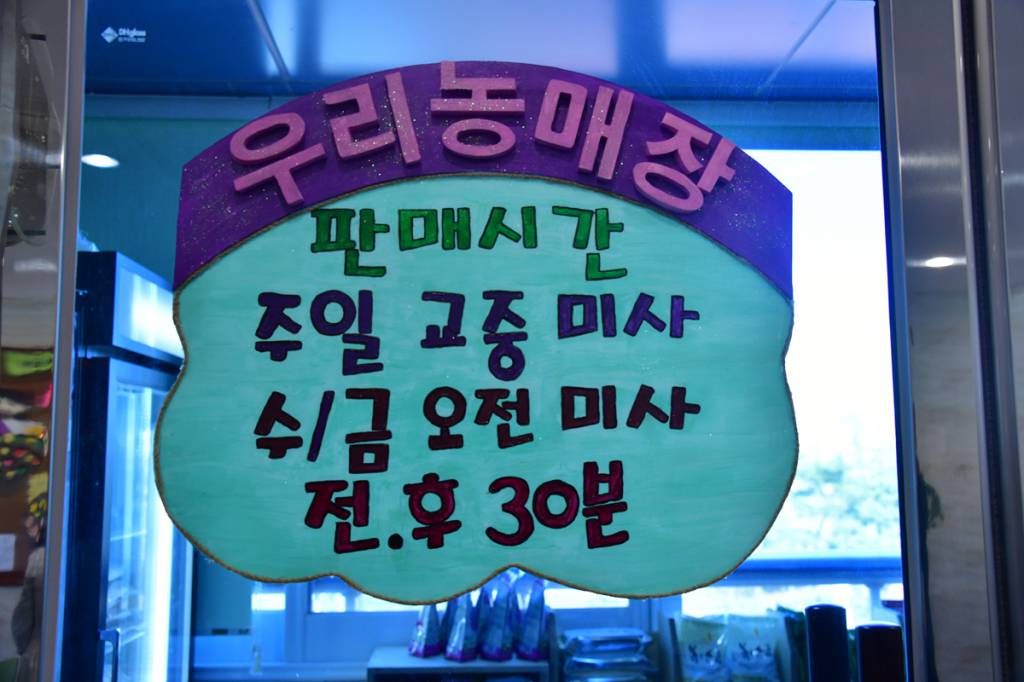 DHglass
우리농매장
판매시간
주일 교중 미사
수/금 오전 미사
전.후 30분